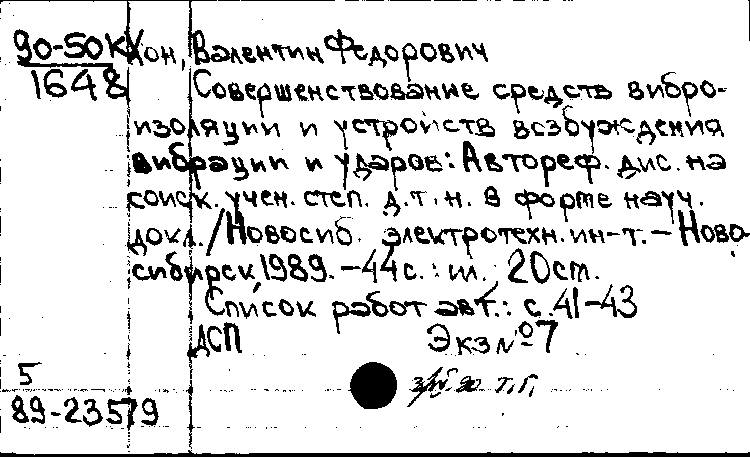 90-50К Хон, Валентин Федорович
1648 Совершенствование средств вибро-
изоляции и устройств возбуждения
вибрации и ударов: Автореф. дис. на
соиск. учен. степ. д.т.н. в форме науч.
докл. / Новосиб. электротехн. ин-т. – Ново
сибирск, 1989. – 44 с.: ил., 20 cm.
Список работ авт.: с. 41-43
ДСП Экз № 7
5
89-23579